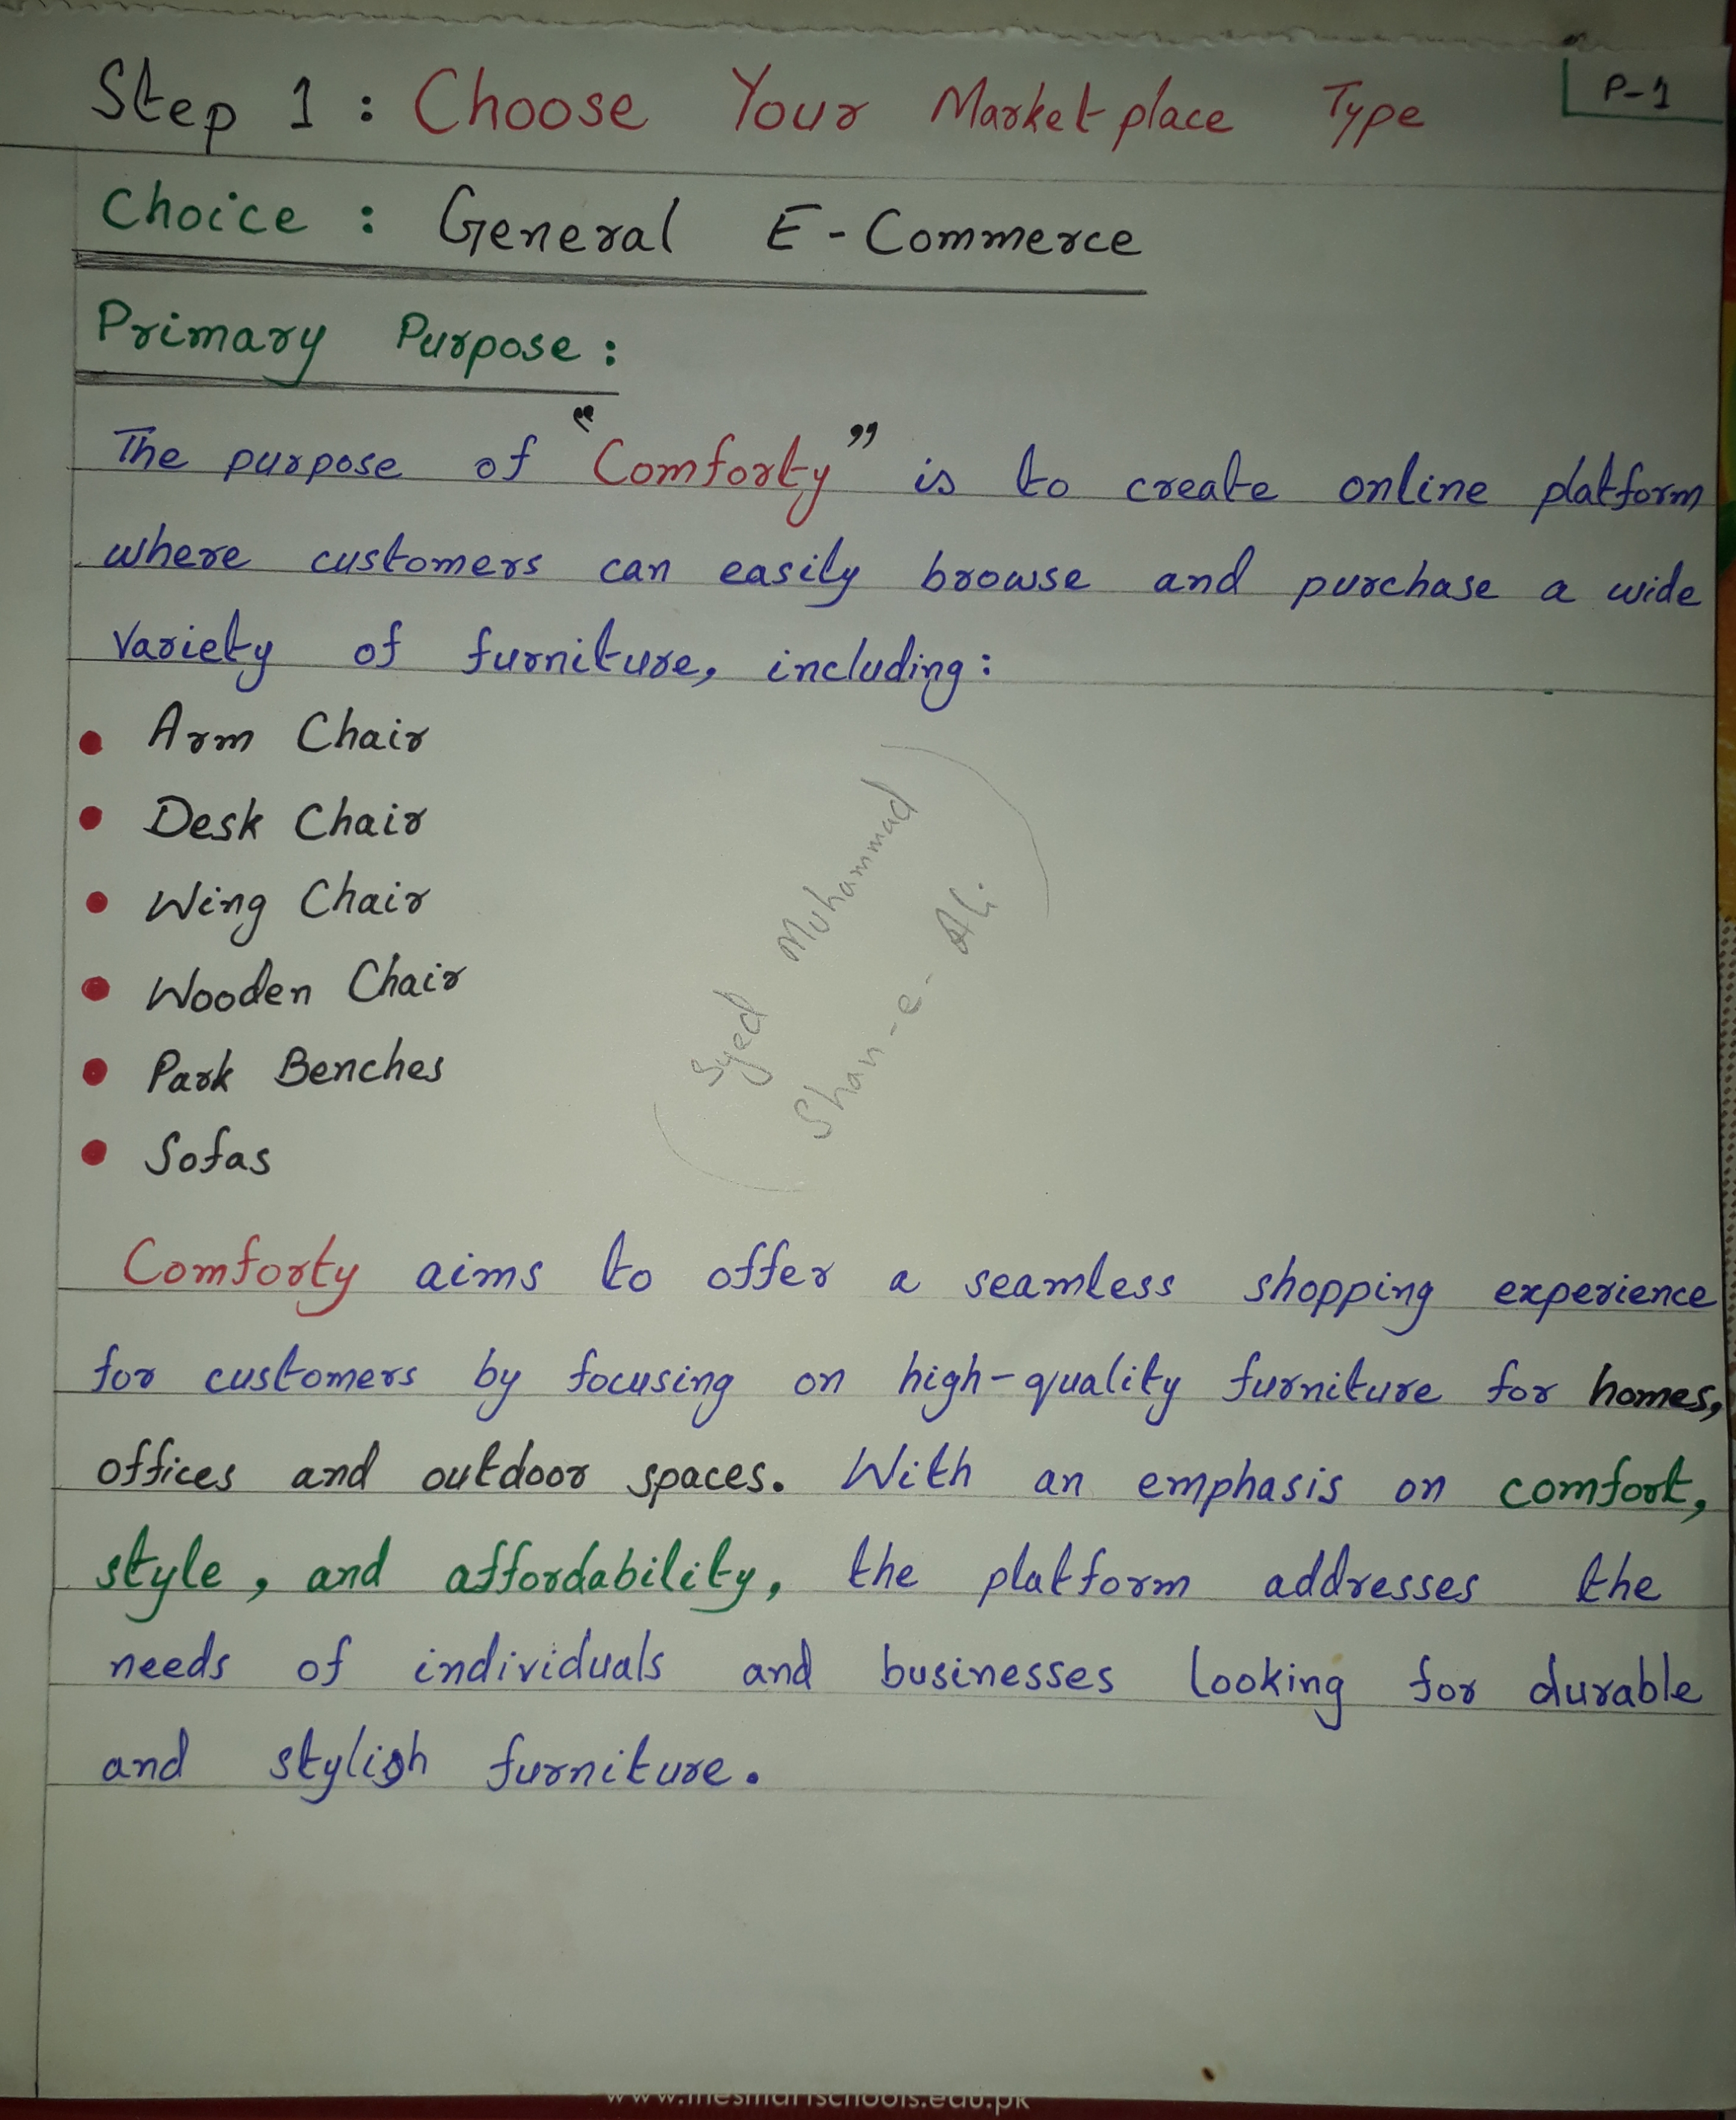 Step 1 : Choose Your Marketplace Type
P-1
Choice : General E-Commerce
Primary Purpose :
The purpose of "Comforty" is to create online platform
where customers can easily browse and purchase a wide
variety of furniture, including:
• Arm Chair
• Desk Chair
• Wing Chair
• Wooden Chair
• Park Benches
• Sofas
Syed Muhammad
Shan-e-Ali
Comforty aims to offer a seamless shopping experience
for customers by focusing on high-quality furniture for homes,
offices and outdoor spaces. With an emphasis on comfort,
style, and affordability, the platform addresses the
needs of individuals and businesses looking for durable
and stylish furniture.